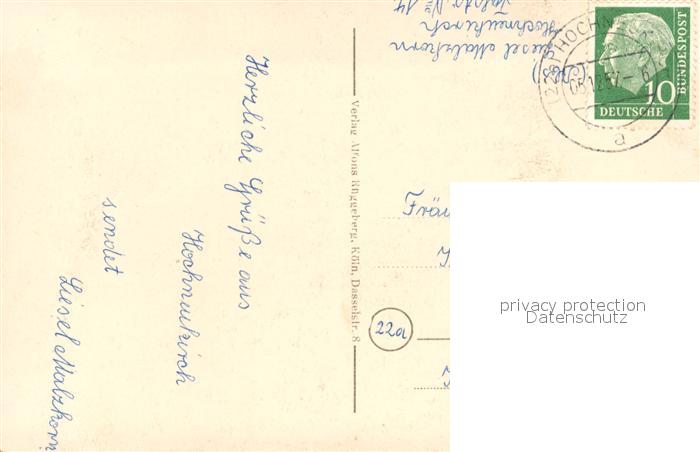 Herzliche Grüße aus
Hochneukirch
sendet
Liesel Malzkorn
Verlag Alfons Rüggeberg, Köln, Dasselstr. 8
Liesel Malzkorn
Hochneukirch
Nº 14
HOCHN
05.12.57
a
10
DEUTSCHE
BUNDESPOST
Fräu
22a
privacy protection
Datenschutz